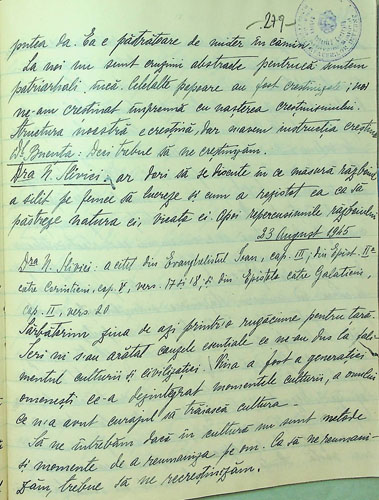 -279-
putea da. Ea e păstrătoare de mister în cămin.
La noi nu sunt crugini abstracte pentrucă suntem
patriarhali încă. Celelalte popoare au fost creștinizate, noi
ne-am creștinat împreună cu nașterea creștinismului.
Structura noastră e creștină, dar n'avem instrucția creștină
Dl. : Deci trebue să ne creștinizăm.
Dra N. Slivici: ar dori să se discute în ce măsură războiul
a silit pe femee să lucreze și cum a rezistat ea ca să
păstreze natura ei, viața ei. Apoi repercusiunile războiului
23 August 1945
Dra N. Slivici: a citit din Evanghelistul Ioan, cap. III; din Epist. II-a
către Corinteni, cap. 4, vers. 17 și 18; și din Epistola către Galateni,
cap. II, vers. 20
Sărbătorim ziua de azi printr'o rugăciune pentru țară.
Ieri ni s'au arătat cauzele esențiale ce ne-au dus la fali-
mentul culturii și civilizației. Vina a fost a generației
omenești ce-a dezintegrat momentele culturii, a omului
ce n-a avut curajul să trăiască cultura.
Să ne întrebăm dacă în cultură nu sunt metode
și momente de a reumaniza pe om. Ca să ne reumani-
zăm, trebue să ne recreștinizăm.